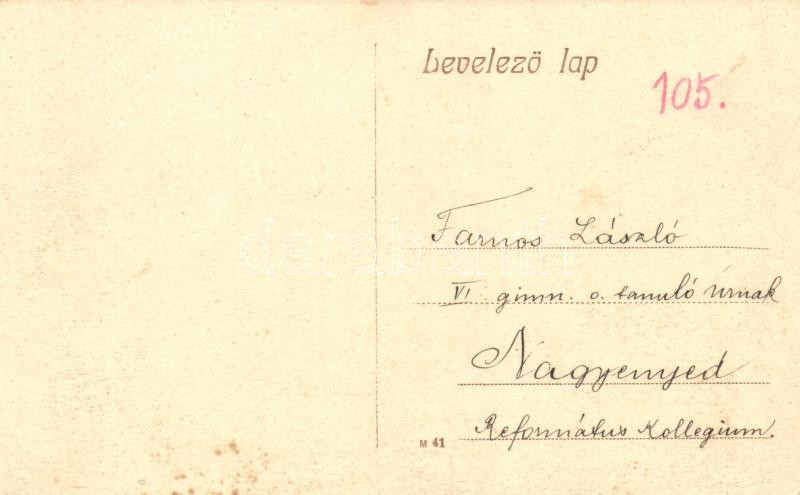 Levelező lap
105.
Farnos László
VI gimn. o. tanuló úrnak
Nagyenyed
Református Kollegium.
M 41